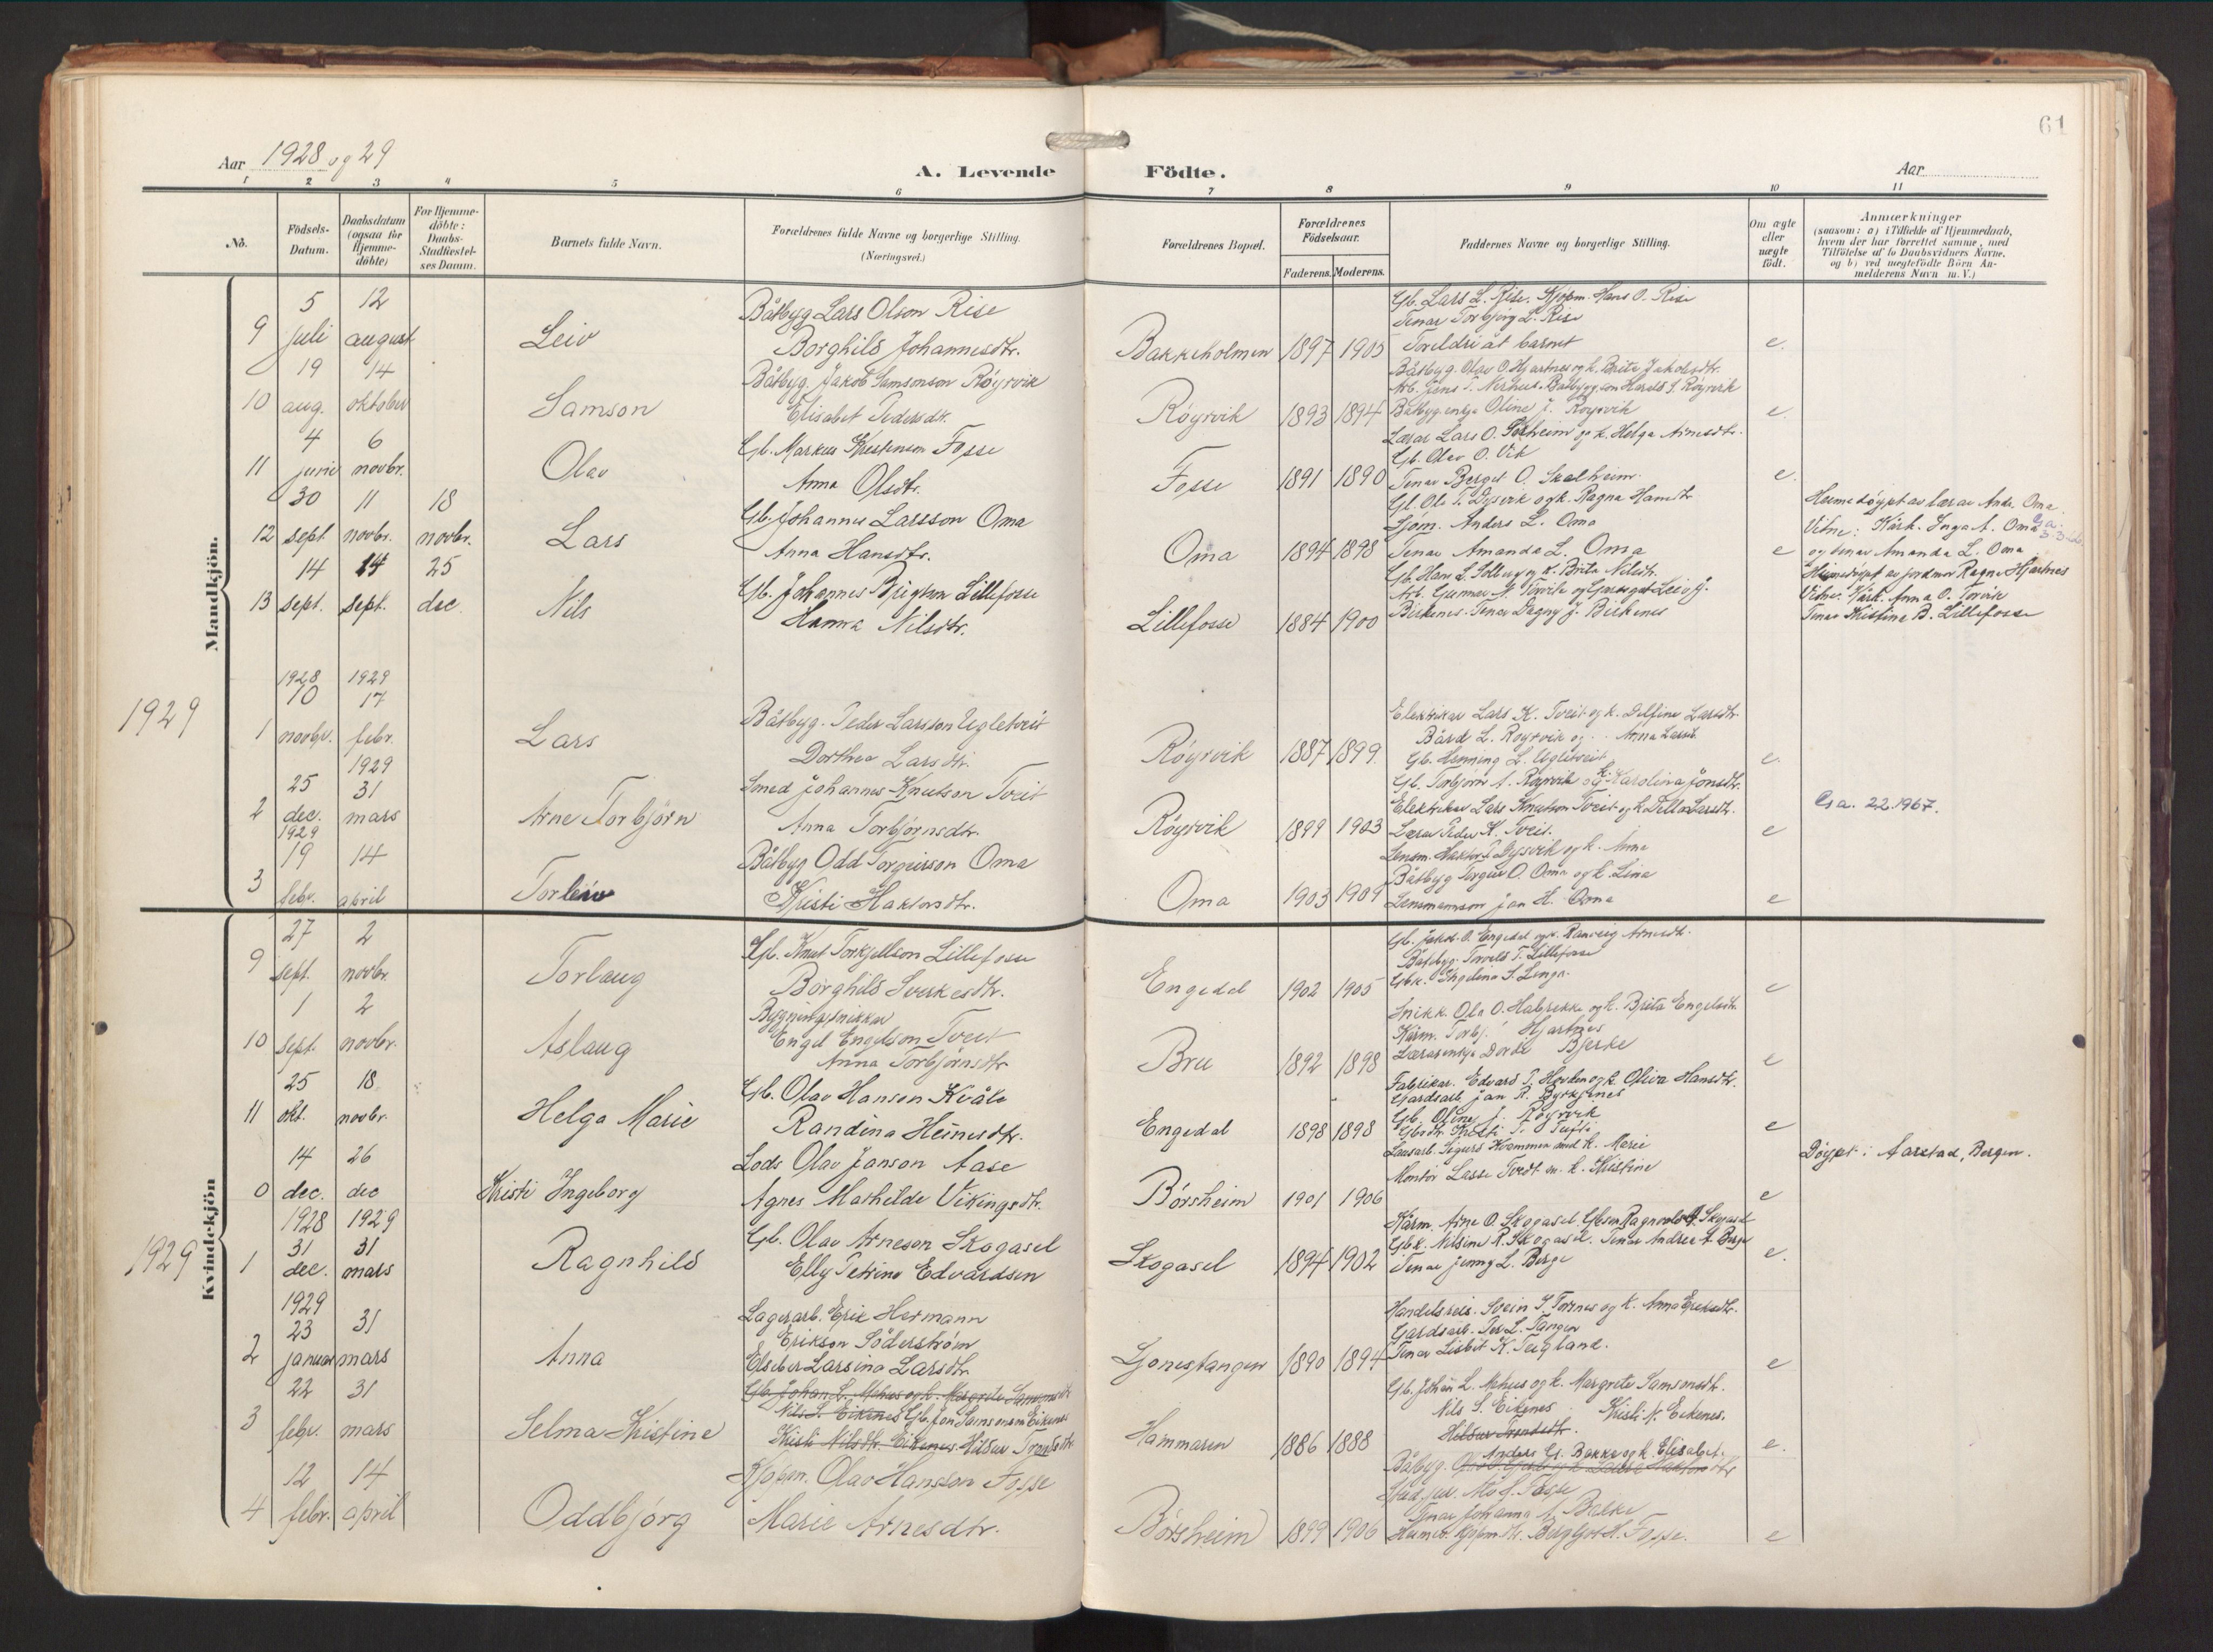 61
Aar 1928 og 29
A. Levende Födte.
Aar
1 2 3 4 5 6 7 8 9 10 11
No.
Födsels-Datum.
Daabsdatum (ogsaa for Hjemme-döbte)
For Hjemme-döbte: Daabs-Stadfæstel-ses Datum.
Barnets fulde Navn.
Forældrenes fulde Navne og borgerlige Stilling. (Næringsvei.)
Forældrenes Bopæl.
Forældrenes Födselsaar.
Faderens. Moderens.
Faddernes Navne og borgerlige Stilling.
Om ægte eller uægte födt.
Anmærkninger
(saasom: a) i Tilfælde af Hjemmedaab,
hvem der har forrettet samme, med
Tilföielse af to Daabsvidners Navne,
og b) ved uægtefödte Börn An-
melderens Navn m. V.)
Mandkjön.
9 5 juli 12 august Leiv
Båtbyg Lars Olson Rise
Borghild Johannesdtr.
Bakkeholmen 1897 1905
Gb. Lars L. Rise. Kjøpm. Hans O. Rise
Tenar Torbjørg L. Rise
Foreldri åt barnet
e.
10 19 aug. 14 oktober Samson
Båtbyg. Jakob Samsonson Røyrvik
Elisabet Pedersdtr.
Røyrvik 1893 1894
Båtbyg. Olav O. Hjartnes og k. Brita Jakobsdtr.
Arb. Jens T. Nerhus. Båtbyggson Harald S. Røyrvik
Båtbyg. enkja Oline J. Røyrvik
e.
11 4 juni 6 novbr. Olav
Gb. Markus Kristenson Fosse
Anna Olsdtr.
Fosse 1891 1890
Lærar Lars O. og k. Helga Arnesdtr.
Gb. Olav O. Vik
Tenar Berget O. Skalheim.
e.
12 30 sept 11 novbr. 18 novbr. Lars
Gb. Johannes Larsson Oma
Anna Hansdtr.
Oma 1894 1898
Gb. Ole T. Dysvik og k. Ragna Hansdtr
Sjøm. Anders L. Oma
Tenar Amanda L. Oma
e
Heimedøypt av lærar Andr. Oma.
Vitne: Kårk. Inga A. Oma
og tenar Amanda L. Oma
13 14 sept. 14 sept. 25 dec. Nils
Gb. Johannes Lillefosse
Hanna Nilsdtr.
Lillefosse 1884 1900
Gb. Hans L. og k. Brita Nilsdtr.
Arb. Gunnar N. og Leiv J.
Birkenes. Tenar Dagny J. Birkenes
Heimedøypt av jordmor Ragna Hjartnes
Vitne: Kårk. Anna O.
Tenar Kristina B. Lillefosse
1929
1 1928 10 novbr. 1929 17 febr. Lars
Båtbyg. Peder Larsson Ugletveit
Dorthea Larsdtr.
Røyrvik 1887 1899.
Elektrikar Lars K. Tveit og k. Delfine Larsdtr.
Bård L. Røyrvik og Anna Larsd.
Gb. Henning L. Ugletveit
e.
2 25 dec. 1929 31 mars Arne Torbjørn
Smed Johannes Knutson Tveit
Anna Torbjørnsdtr.
Røyrvik 1899 1903
Gb. Torbjørn A. Røyrvik og k. Karolina Jonsdtr.
Elektrikar Lars Knutson Tveit og k. Larsdtr.
Lærar Peder K. Tveit.
e
22.1967.
3 1929 19 febr. 14 april Torleiv
Båtbyg Odd Torgeirsson Oma
Kristi Haktorsdtr.
Oma 1903 1909
Lensm. Haktor T. Dysvik og k. Anna
Båtbyg Torgeir O. Oma og k. Lina
Lensmannson Jan H. Oma
e
Kvindekjön
9 27 sept. 2 novbr. Torlaug
Gb. Knut Torkjellson Lillefosse
Borghild Sverkesdtr.
Engedal 1902 1905
Gb. Jakob O. Engedal og k. Ranveig Arnesdtr.
Båtbyg. T. Lillefosse
Gbk. Ingelena S. Linga.
e
10 1 sept. 2 novbr. Aslaug
Bygningssnikkar
Engel Engelson Tveit
Anna Torbjørnsdtr
Bru 1892 1898
Snikk. Ola O. Halsrekke og k. Brita Engelsdtr.
Kårm. Torbj. Hjartnes
Lærarenkja Dorte Bjerke
e
11 25 okt. 18 novbr. Helga Marie
Gb. Olav Hanson Kvåle
Randina Heinesdtr.
Engedal 1898 1898
Fabrikar. Edvard T. Hovden og k. Oliva Hansdtr.
Gardsarb. Jan R. Byrkjenes
Gb. Oline J. Røyrvik
e
0 14 dec. 26 dec Kristi Ingeborg
Lods Olav Janson Aase
Agnes Mathilde Vikingsdtr.
Børsheim 1901 1906
Lausarb. Sigurd Kvammen med k. Marie
Montør Lasse Tvedt m. k. Kristine
e
Døypt i Aarstad, Bergen.
1929
1 1928 31 dec. 1929 31 mars Ragnhild
Gb. Olav Arneson Skogasel
Elly Petrine Edvardsen
Skogasel 1894 1902
Kårm. Arne O. Skogasel. Gbson Ragnvald A. Skogasel
Gbk. Nilsine R. Skogasel. Tenar Andrea A. Berge
Tenar Jenny L. Berge
e.
2 1929 23 januar 31 mars Anna
Lagerarb. Erik Hermann
Erikson Söderström
Elseber Larsina Larsdtr.
Ljonestangen 1890 1894
Handelsreis. Svein S. Tornes og k. Anna Eriksdtr.
Gardsarb. Per L. Tangen
Tenar Lisbet K. Teigland.
e
3 22 febr. 31 mars Selma Kristine
Gb. Johan L. Mehus og k. Margrete Samsonsdtr
Nils S. Eikenes Gb. Jon Samsonson Eikenes
Kristi Nilsdtr. Eikenes. Hildur Trondsdtr
Hammaren 1886 1888
Gb. Johan L. Mehus og k. Margrete Samsonsdtr.
Nils S. Eikenes. Kristi N. Eikenes.
Hildur Trondsdtr.
e.
4 12 febr. 14 april Oddbjørg
Kjøpm. Olav Hansson Fosse
Marie Arnesdtr.
Børsheim 1899 1906
Båtbyg. Anders G. Bakke og k. Elisabet.
Stud. jur. H. Fosse
Tenar Johanna A. Bakke
Bergljot H. Fosse.
e